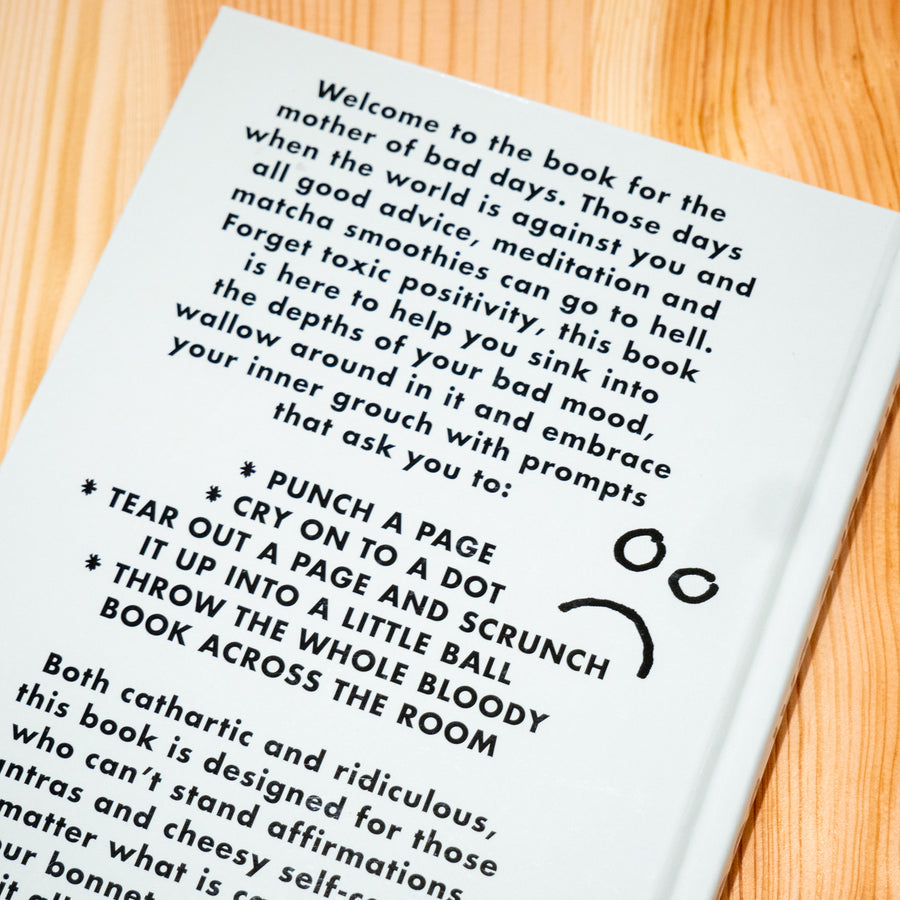 Welcome to the book for the
mother of bad days. Those days
when the world is against you and
all good advice, meditation and
matcha smoothies can go to hell.
Forget toxic positivity, this book
is here to help you sink into
the depths of your bad mood,
wallow around in it and embrace
your inner grouch with prompts
that ask you to:
* PUNCH A PAGE
* CRY ON TO A DOT
* TEAR OUT A PAGE AND SCRUNCH
IT UP INTO A LITTLE BALL
* THROW THE WHOLE BLOODY
BOOK ACROSS THE ROOM
Both cathartic and ridiculous,
this book is designed for those
who can't stand affirmations,
and cheesy
matter what is
bonnet